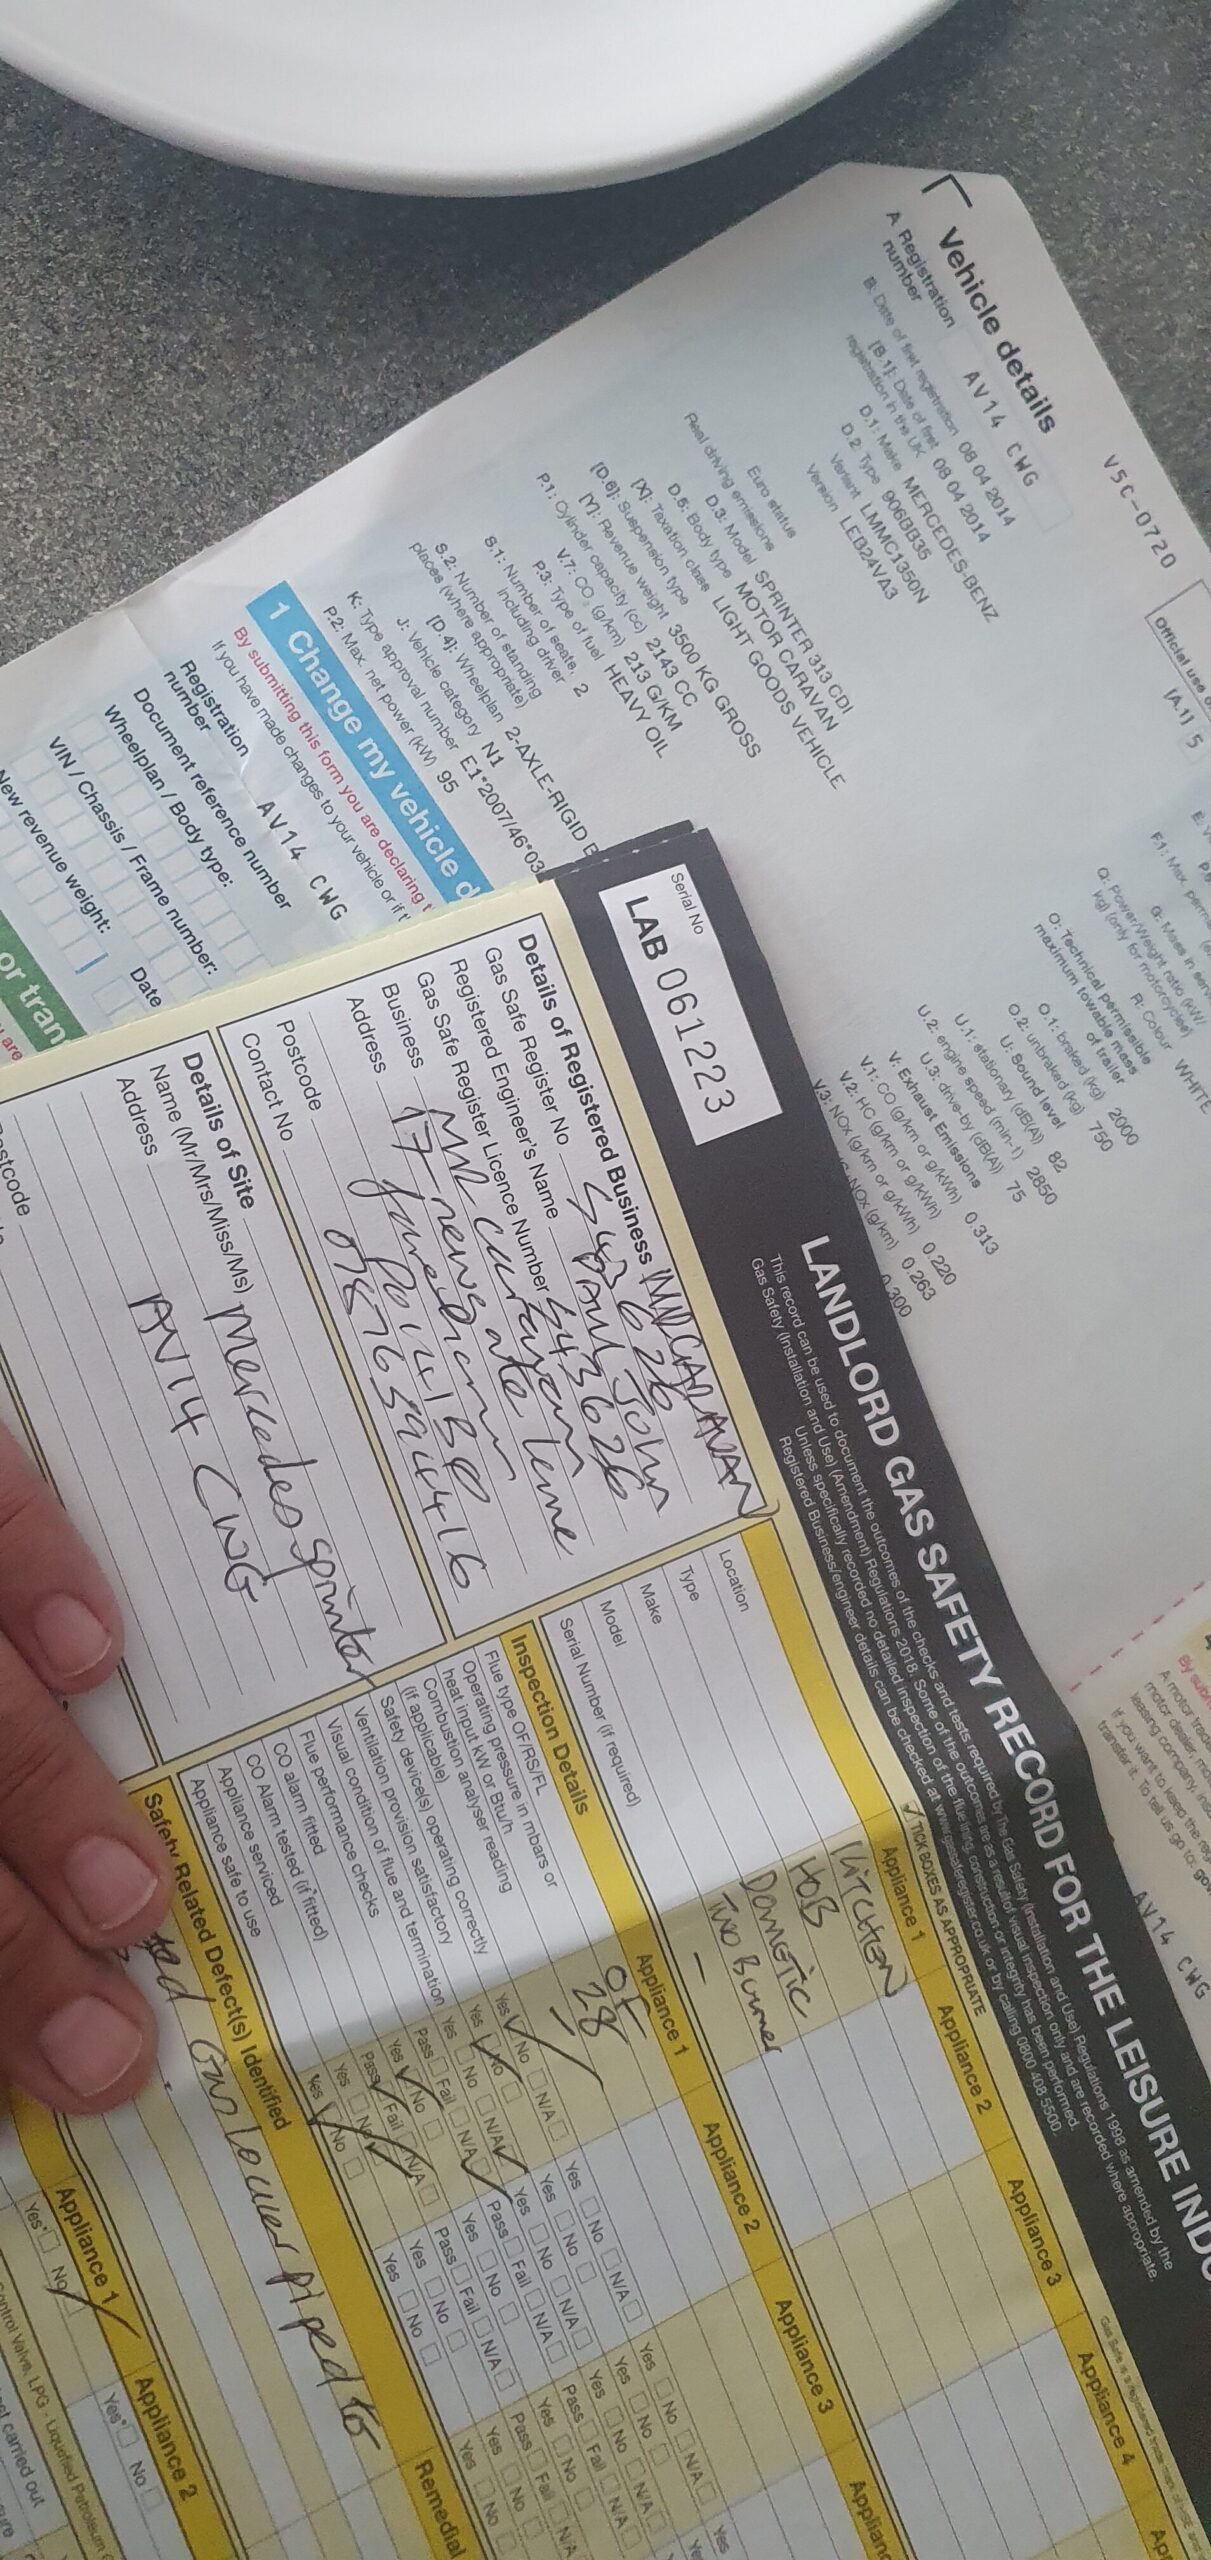 Vehicle details
VSC-0720
Official use o
A Registration
number
AV14 CWG
[A.1] 5
B: Date of first registration 08 04 2014
[B.1]: Date of first
registration in the UK 08 04 2014
D.1: Make MERCEDES-BENZ
D.2: Type 906BB35
Variant LMMC1350N
Version LEB24VA3
Euro status
Real driving emissions
D.3: Model SPRINTER 313 CDI
D.5: Body type MOTOR CARAVAN
[X]: Taxation class LIGHT GOODS VEHICLE
[D.6]: Suspension type
[Y]: Revenue weight 3500 KG GROSS
P.1: Cylinder capacity (cc) 2143 CC
V.7: CO₂ (g/km) 213 G/KM
P.3: Type of fuel HEAVY OIL
S.1: Number of seats,
including driver 2
S.2: Number of standing
places (where appropriate)
[D.4]: Wheelplan 2-AXLE-RIGID B
J: Vehicle category N1
K: Type approval number E1*2007/46*03
P.2: Max. net power (kW) 95
F.1: Max. perm
G: Mass in serv
Q: Power/Weight ratio (kW/
kg) (only for motorcycles)
R: Colour WHITE
O: Technical permissible
maximum towable mass
of trailer
O.1: braked (kg) 2000
O.2: unbraked (kg) 750
U: Sound level
U.1: stationary (dB(A)) 82
U.2: engine speed (min-1) 2850
U.3: drive-by (dB(A)) 75
V: Exhaust Emissions
V.1: CO (g/km or g/kWh) 0.313
V.2: HC (g/km or g/kWh) 0.220
V.3: NOx (g/km or g/kWh) 0.263
NOx (g/km) 0.300
1 Change my vehicle d
By submitting this form you are declaring t
If you have made changes to your vehicle or if
Registration
number
AV14 CWG
Document reference number
Wheelplan / Body type:
VIN / Chassis / Frame number:
New revenue weight:
Date
or tran
AV14 CWG
Serial No
LAB 061223
LANDLORD GAS SAFETY RECORD FOR THE LEISURE INDU
This record can be used to document the outcomes of the checks and tests required by The Gas Safety (Installation and Use) Regulations 1998 as amended by the
Gas Safety (Installation and Use) (Amendment) Regulations 2018. Some of the outcomes are as a result of visual inspection only and are recorded where appropriate.
Unless specifically recorded no detailed inspection of the flue lining, construction or integrity has been performed.
Registered Business/engineer details can be checked at www.gassaferegister.co.uk or by calling 0800 408 5500.
Details of Registered Business MR CARAVAN
Gas Safe Register No 543626
Registered Engineer's Name PAUL John
Gas Safe Register Licence Number 543626
Business MR Caravan
Address 17 newgate lane
fareham
Postcode Po14 1BP
Contact No
Details of Site
Name (Mr/Mrs/Miss/Ms) Mercedes sprinter
Address AV14 CWG
Postcode
✓ TICK BOXES AS APPROPRIATE
Appliance 1 Appliance 2 Appliance 3 Appliance 4
Location KITCHEN
Type HOB
Make DOMETIC
Model Two Burner
Serial Number (if required) –
Inspection Details Appliance 1 Appliance 2 Appliance 3
Flue type OF/RS/FL OF
Operating pressure in mbars or
heat input kW or Btu/h 28
Combustion analyser reading
(if applicable)
Safety device(s) operating correctly Yes No N/A
Ventilation provision satisfactory Yes No
Visual condition of flue and termination Pass Fail N/A
Flue performance checks Pass Fail N/A
CO alarm fitted Yes No
CO Alarm tested (if fitted) Pass Fail N/A
Appliance serviced Yes No
Appliance safe to use Yes No
Safety Related Defect(s) Identified
Remedial
Gas locker piped to
Appliance 1 Appliance 2
Yes No Yes No